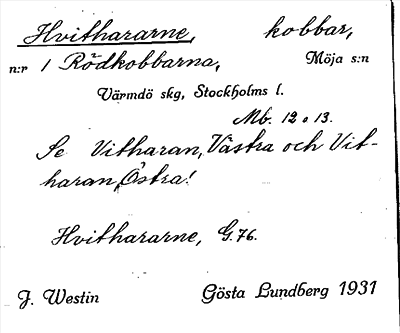 Hvithararne, kobbar,
n:r 1 Rödkobbarna, Möja s:n
Värmdö skg, Stockholms l.
Mb. 12 o 13.
Se Vitharan, Västra och Vit-
haran, Östra!
Hvithararne, G. 76.
J. Westin Gösta Lundberg 1931